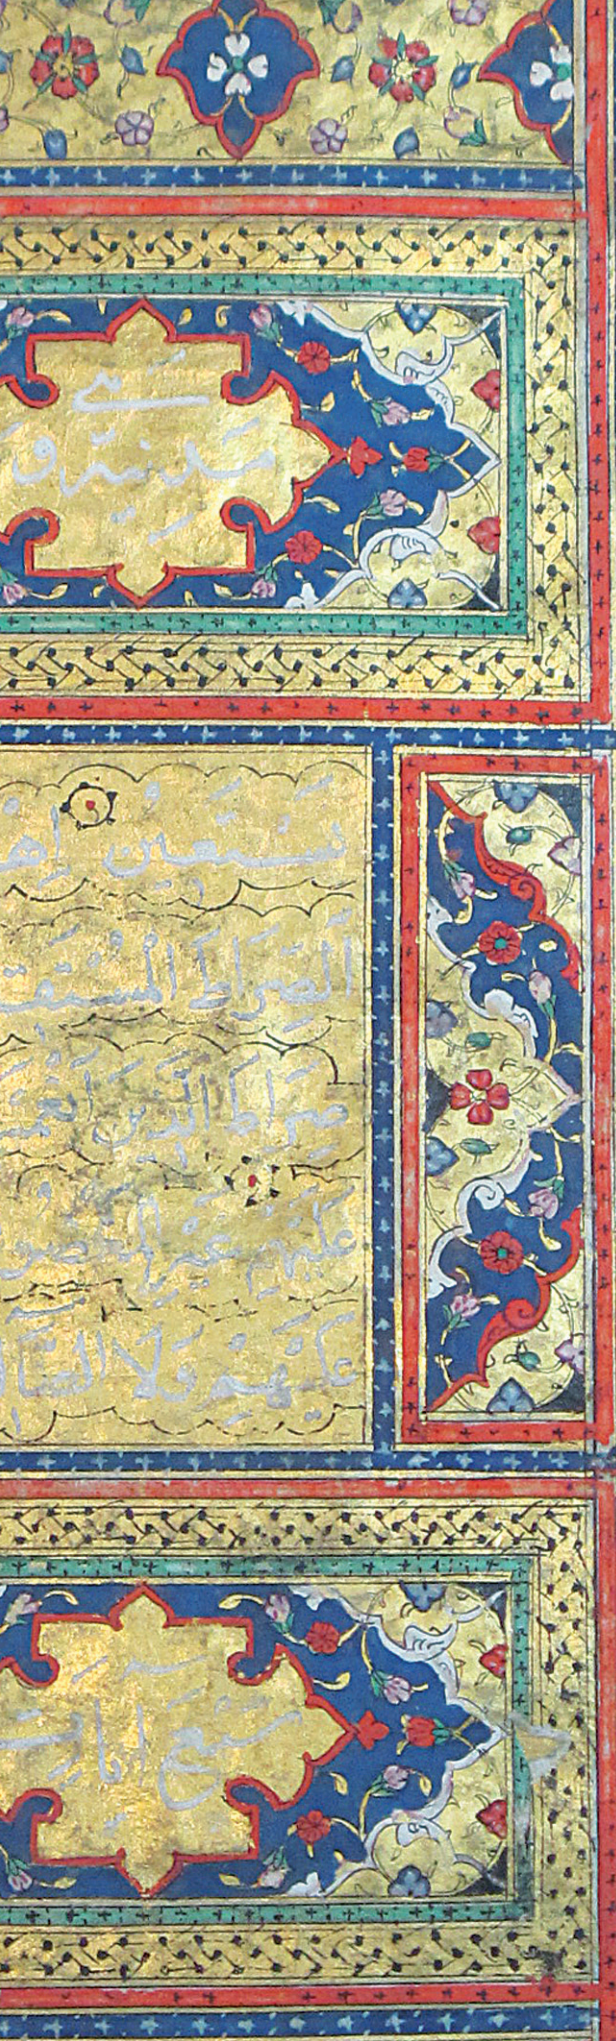 هي
مدنية و
نَسْتَعِينُ اِهْ
الصِّرَاطَ الْمُسْتَقِ
صِرَاطَ الَّذِينَ اَنْعَمْ
عَلَيْهِمْ غَيْرِ الْمَغْضُو
عَلَيْهِمْ وَلَا الضَّا
سَبْعَ ايات